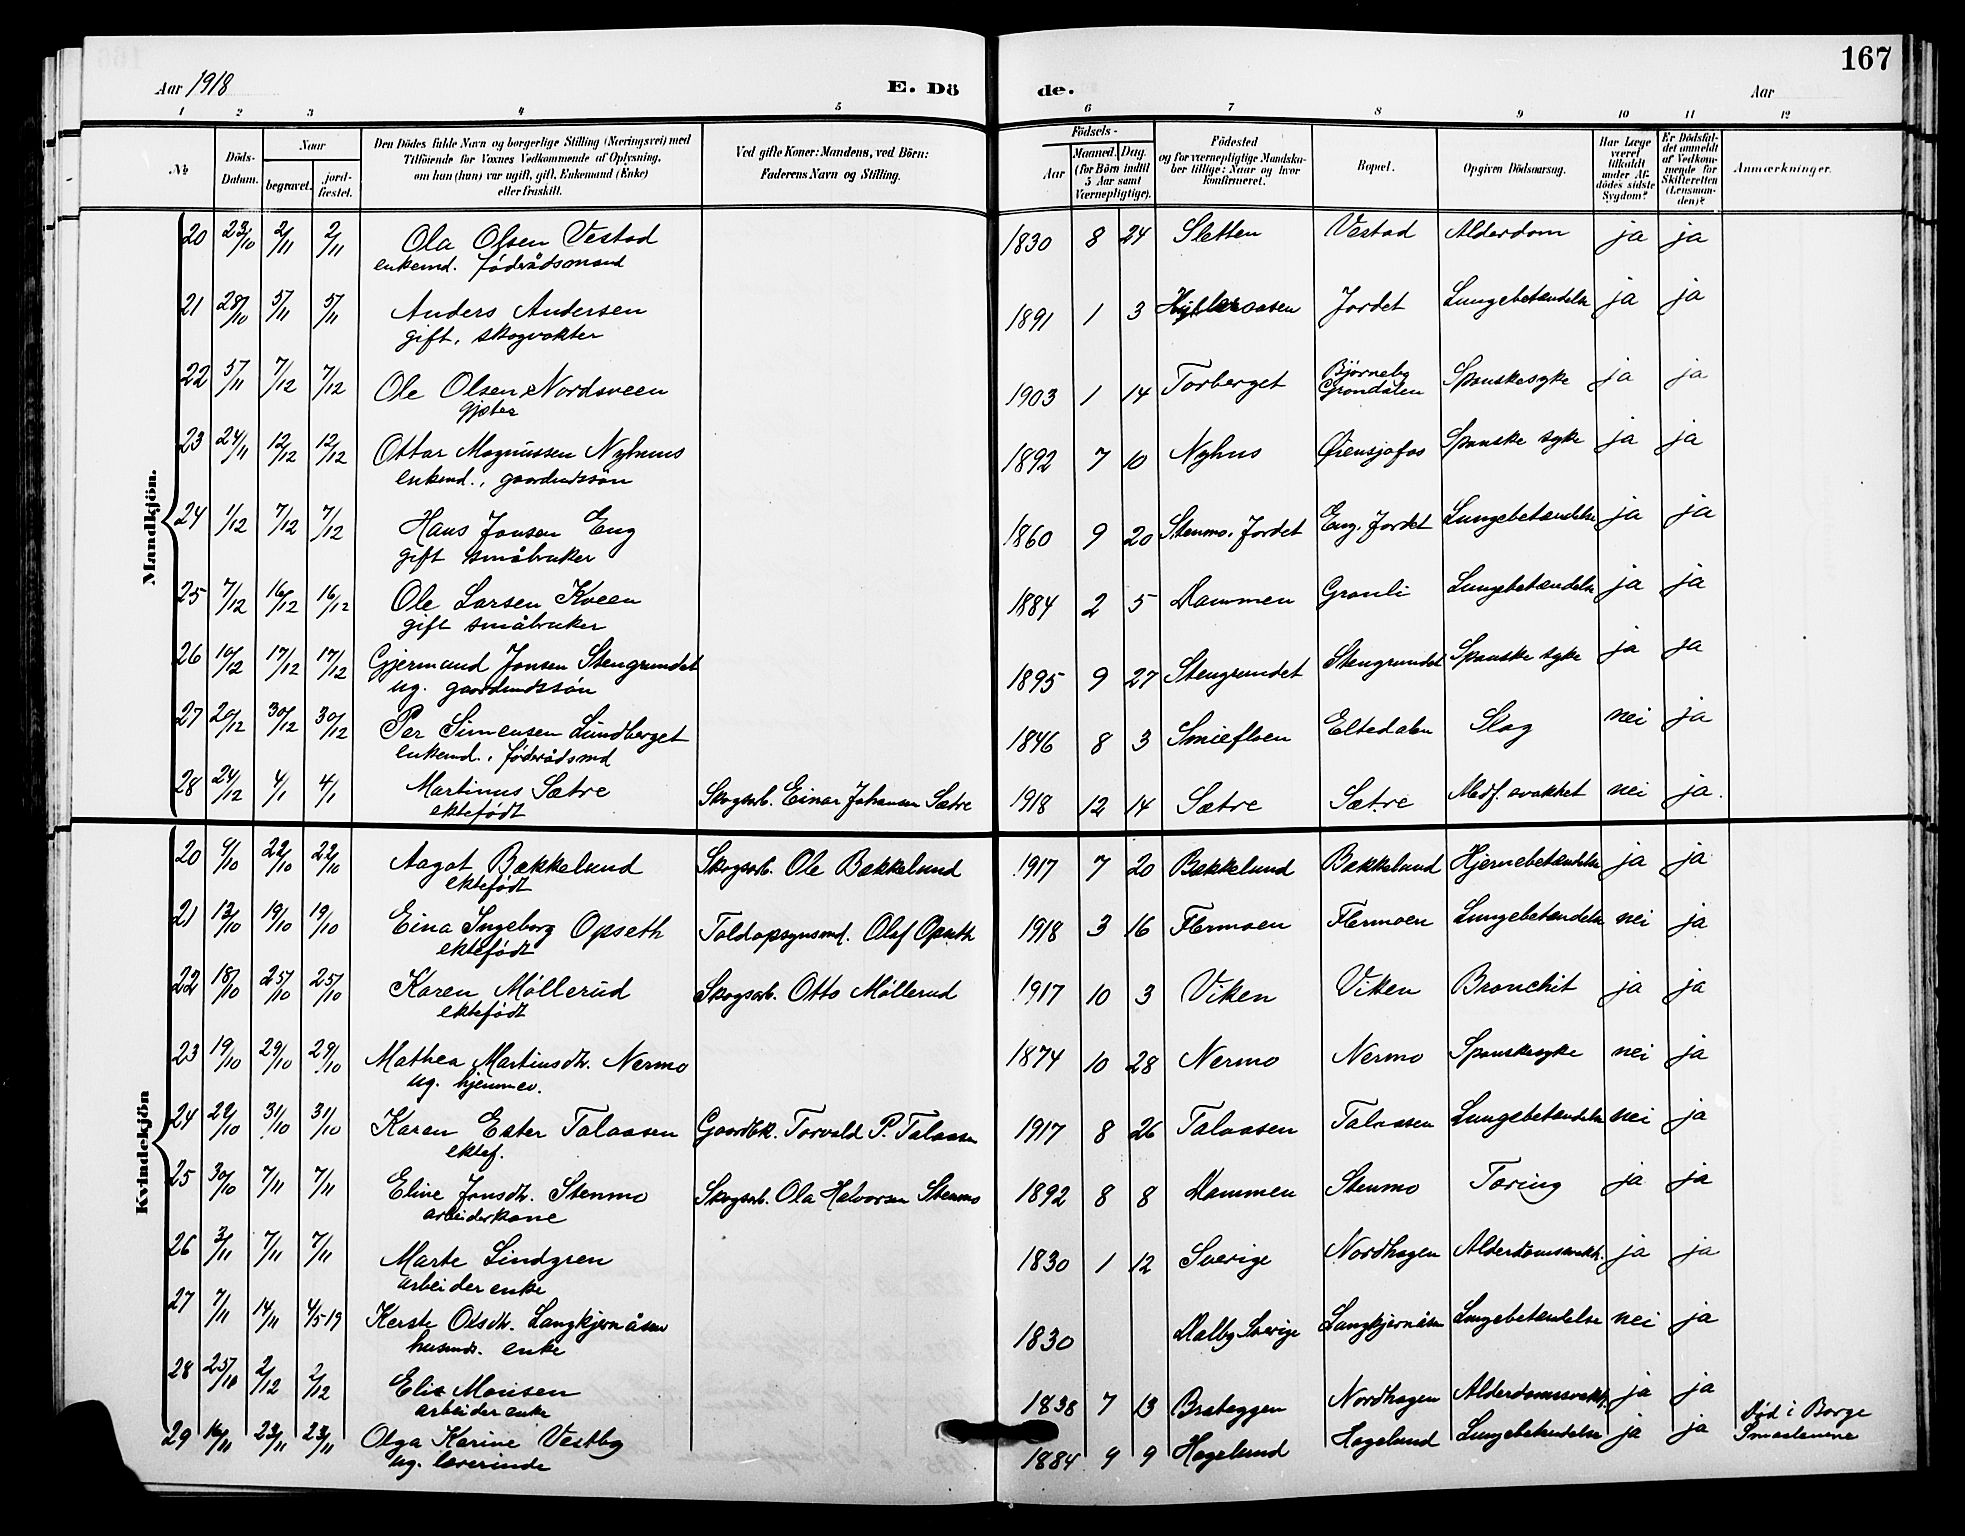 167
Aar 1918
E. Dö
de.
Aar
1 2 3 4 5 6 7 8 9 10 11 12
No
Döds-Datum.
Naar
begravet.
jord-fæstet.
Den Dödes fulde Navn og borgerlige Stilling (Næringsvei) med
Tilföiende for Voxnes Vedkommende af Oplysning,
om hun (hun) var ugift, gift, Enkemand (Enke)
eller fraskilt.
Ved gifte Koner: Mandens, ved Börn:
Faderens Navn og Stilling.
Födsels-
Aar
Maaned. Dag.
(for Börn indtil
5 Aar samt
Værnepligtige).
Födested
og for værnepligtige Mandska-
ber tillige: Naar og hvor
konfirmeret.
Bopæl.
Opgiven Dödsaarsag.
Har Læge
været
tilkaldt
under Af-
dödes sidste
Sygdom?
Er Dödsfal-
det anmeldt
af Vedkom-
mende for
Skifteretten
(Lensman-
den)?
Anmærkninger.
Mandkjön.
20 23/10 2/11 2/11 Ola Olsen Vestad 1830 8 24 Sletten Vestad Alderdom ja ja
enkemd. föderådsmand
21 28/10 5/11 5/11 Anders Andersen 1891 1 3 Hylleraasen Jordet Lungebetændelse ja ja
gift. skogvokter
22 5/11 7/12 7/12 Ole Olsen Nordsveen 1903 1 14 Torberget Björneby Grøndalen Spanskesyke ja ja
gjæter
23 24/11 12/12 12/12 Ottar Magnussen Nyhuus 1892 7 10 Nyhus Ørensjøfos Spanske syke ja ja
enkemd., gaardmdssön
24 1/12 7/12 7/12 Hans Jonsen Eng 1860 9 20 Stenmo. Jordet Eng. Jordet Lungebetændelse ja ja
gift småbruker
25 7/12 16/12 16/12 Ole Larsen Kveen 1884 2 5 Mammen Granli Lungebetændelse ja ja
gift småbruker
26 10/12 17/12 17/12 Gjermund Jonsen Stengrundet 1895 9 27 Stengrundet Stengrundet Spanske syke ja ja
ug. gaardmdssön
27 20/12 30/12 30/12 Per Simensen Lundberget 1846 8 3 Smiefloen Eltedalen Slag nei ja
enkemd., föderådsmd
28 24/12 4/1 4/1 Martinus Sætre Skogsarb. Einar Johansen Sætre 1918 12 14 Sætre Sætre Medf. svakhet nei ja.
ektefödt
Kvindekjön
20 9/10 22/10 22/10 Aagot Bækkelund Skogsarb. Ole Bækkelund 1917 7 20 Bækkelund Bækkelund Hjernebetændelse ja ja
ektefödt
21 13/10 19/10 19/10 Eina Ingeborg Opseth Toldopsynsmd. Olaf Opseth 1918 3 16 Flermoen Flermoen Lungebetændelse nei ja
ektefödt
22 18/10 25/10 25/10 Karen Möllerud Skogsarb. Otto Möllerud 1917 10 3 Viken Viken Bronchit ja ja
ektefödt
23 19/10 29/10 29/10 Mathea Martinsdtr. Nermo 1874 10 28 Nermo Nermo Spanskesyke nei ja
ug. hjemmev.
24 22/10 31/10 31/10 Karen Ester Talaasen Gaardbr. Torvald P. Talaasen 1917 8 26 Talaasen Talaasen Lungebetændelse nei ja
ektef.
25 30/10 7/11 7/11 Eline Jonsdtr. Stenmo Skogsarb. Ola Halvorsen Stenmo 1892 8 8 Mammen Stenmo Tæring ja ja
arbeiderkone
26 3/11 7/11 7/11 Marte Lindgren 1830 1 12 Sverige Nordhagen Alderdomssvakh. ja ja
arbeiderenke
27 7/11 14/11 4/5-19 Kerste Olsdtr. Langkjernåsen 1830 Malby Sverige Langkjernåsen Lungebetændelse nei ja
husmds. enke
28 25/10 2/12 2/12 Elise Monsen 1838 7 13 Brateggen Nordhagen Alderdomssvakh. ja ja
arbeiderenke
29 16/11 23/11 23/11 Olga Karine Vestby 1884 9 9 Hagelund Hagelund Lungebetændelse ja ja Død i Borge Smaalenene
ug. lærerinde